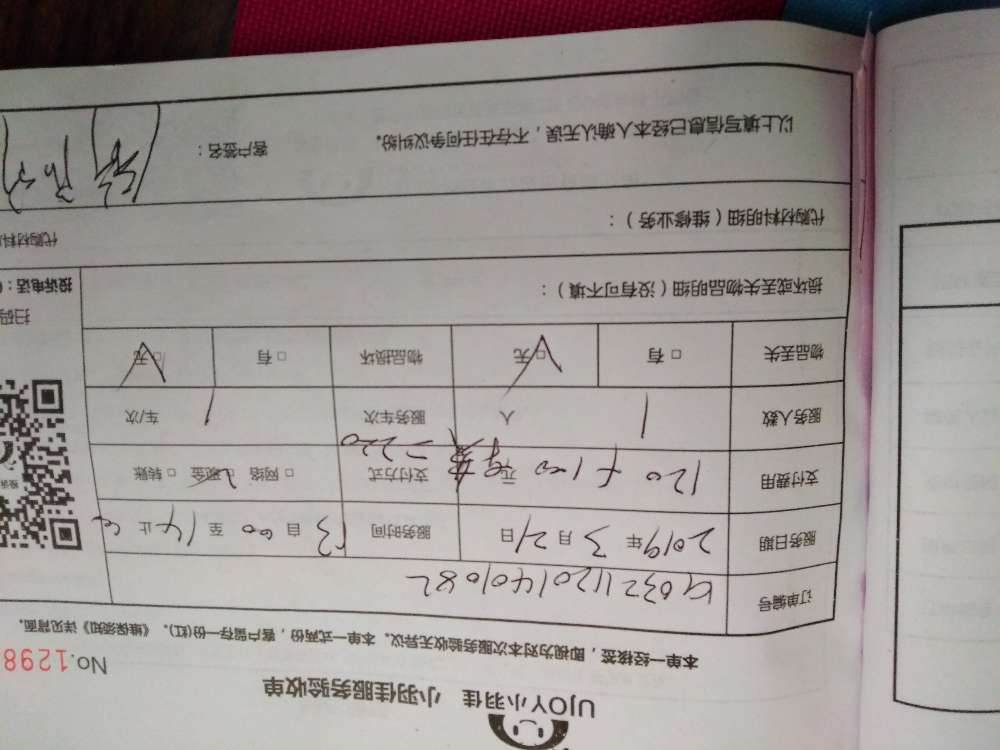 UJOY小羽佳 小羽佳服务验收单
No.1298
本单一经核签，即视为对本次服务验收无异议。本单一式两份，客户存留一份(红)。《维保须知》详见背面。
订单编号
服务日期 2019年3月21日 服务时间 13自00至14止00
支付费用 120+100元 =220 支付方式 □网络 □现金 □转账
服务人数 1人 服务车次 1车/次
物品丢失 □有 □无 物品损坏 □有 □无
损坏或丢失物品明细（没有可不填）：
投诉电话：
扫码
代购材料明细（维修业务）：
代购材料
以上填写信息已经本人确认无误，不存在任何争议纠纷。 客户签名：